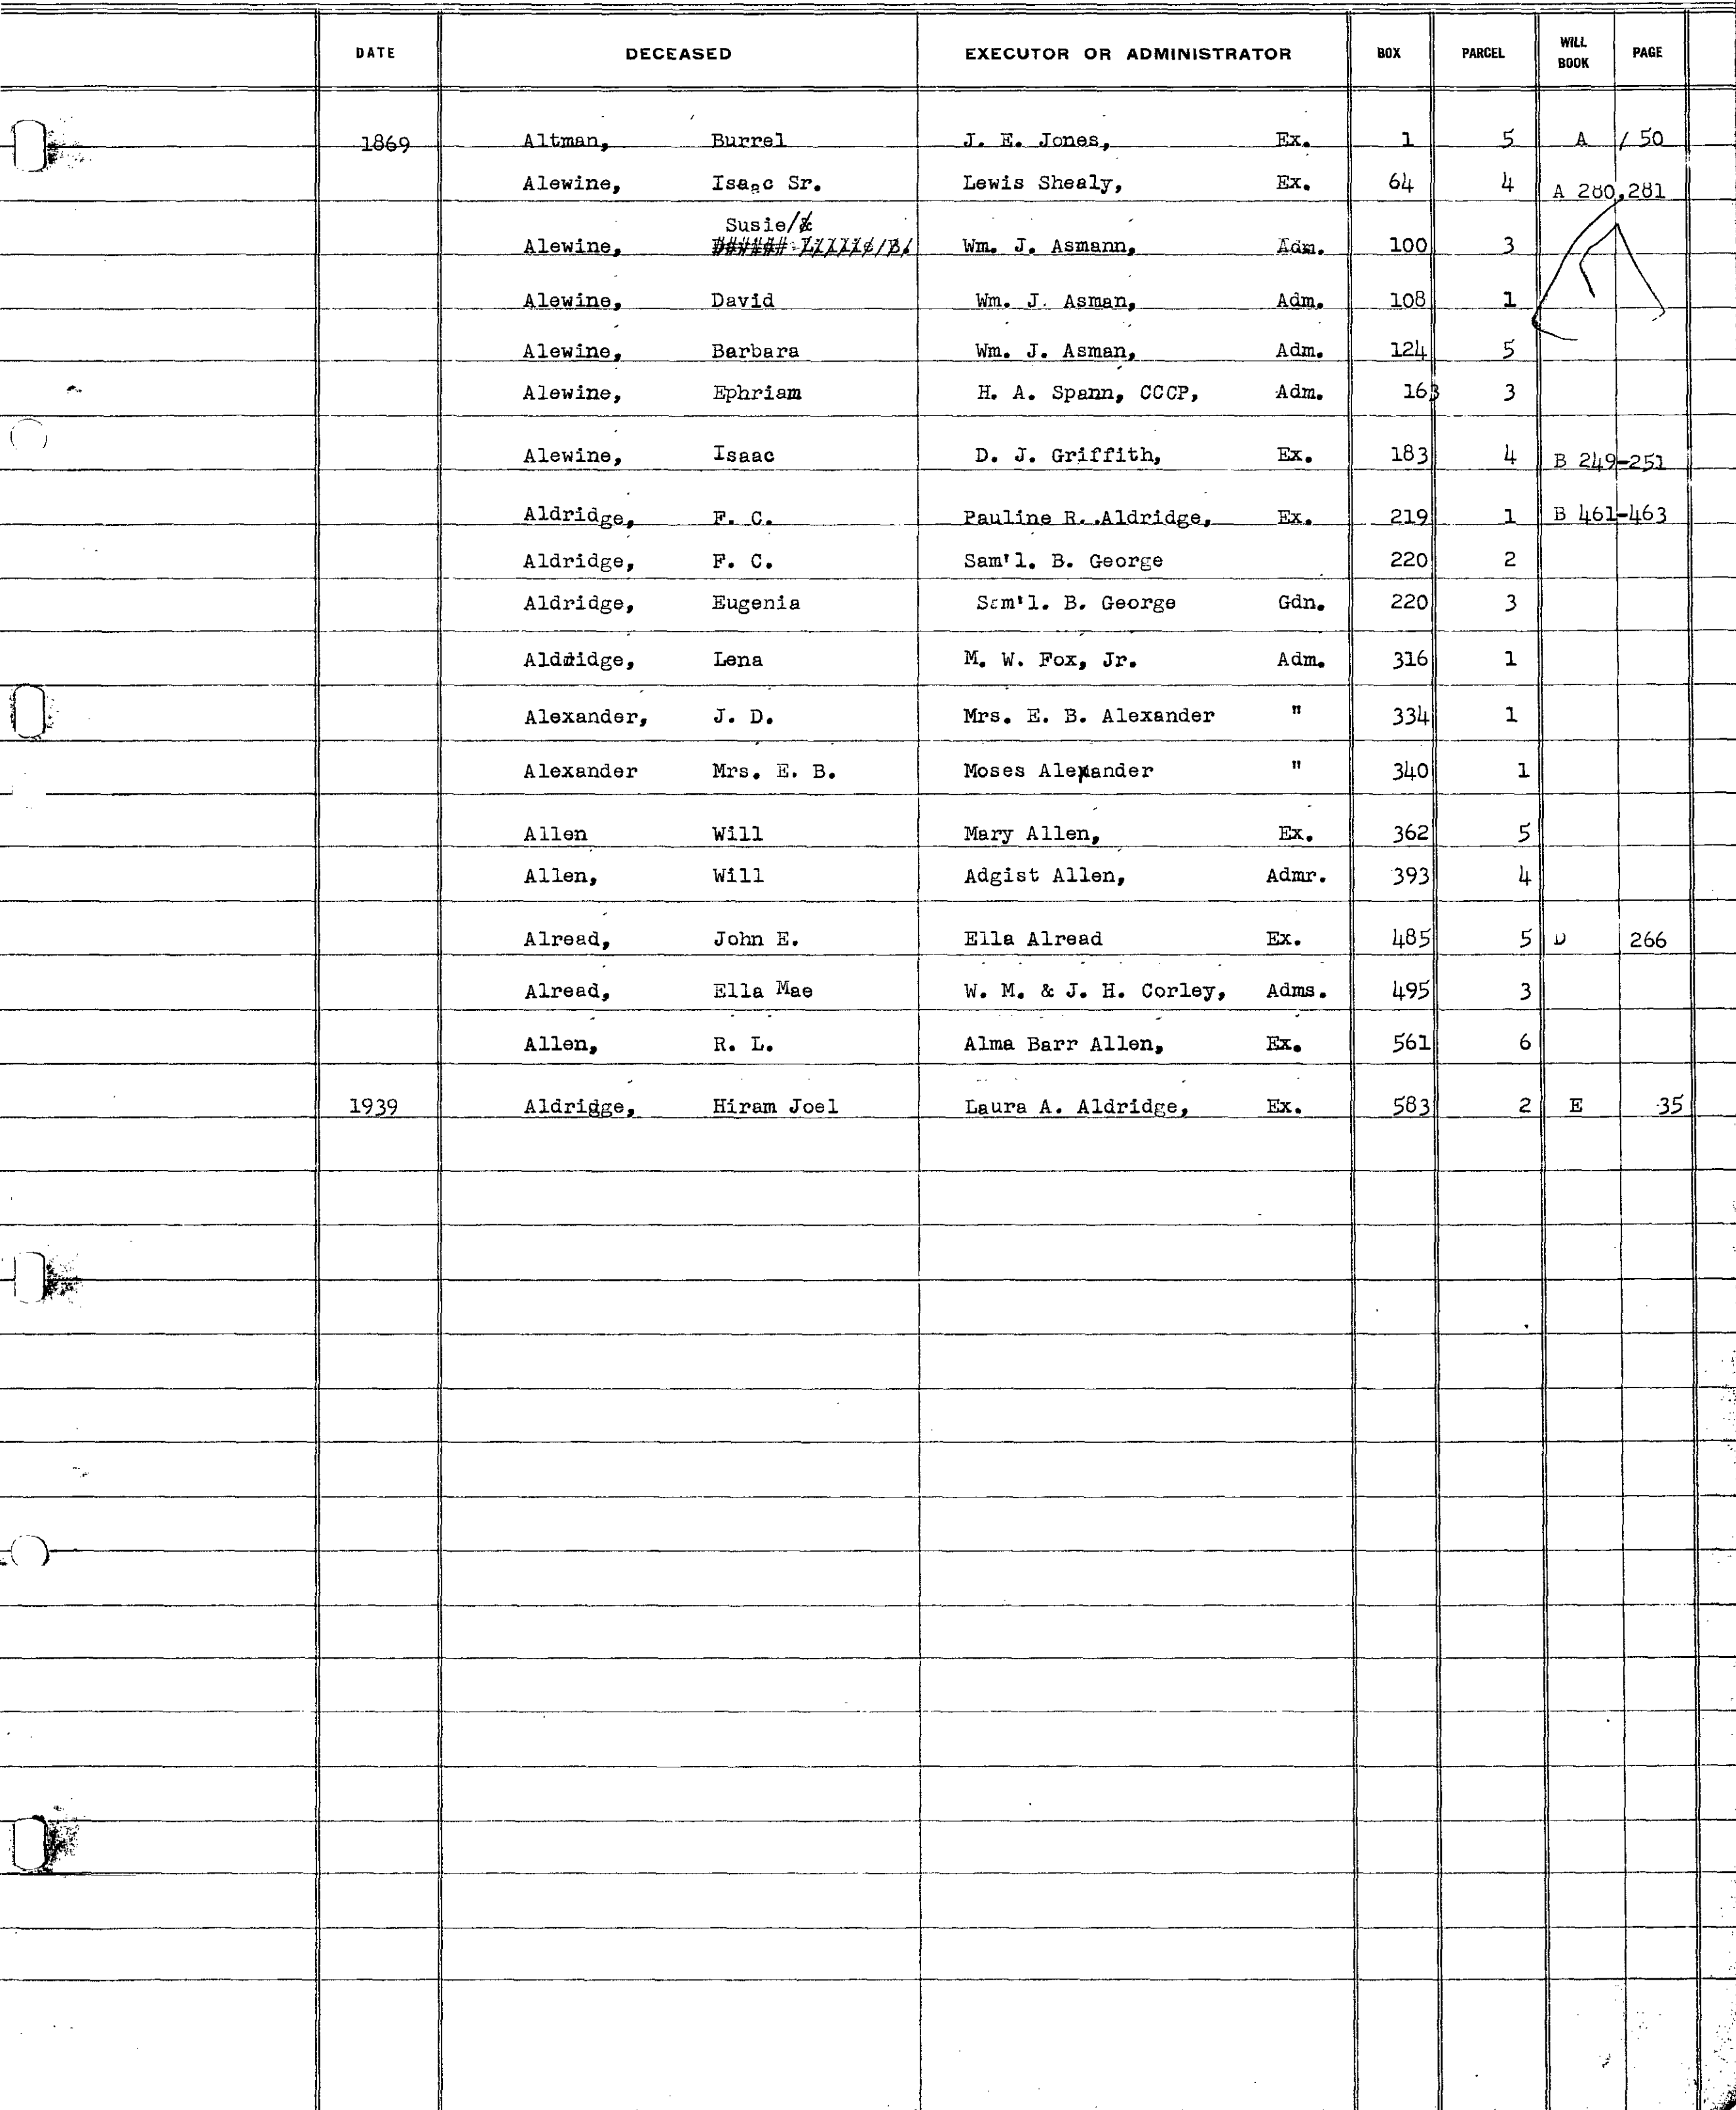 DATE DECEASED EXECUTOR OR ADMINISTRATOR BOX PARCEL WILL BOOK PAGE
1869 Altman, Burrel J. E. Jones, Ex. 1 5 A / 50
Alewine, Isaac Sr. Lewis Shealy, Ex. 64 4 A 280,281
Susie/&
Alewine, Wm. J. Asmann, Adm. 100 3
Alewine, David Wm. J. Asman, Adm. 108 1
Alewine, Barbara Wm. J. Asman, Adm. 124 5
Alewine, Ephriam H. A. Spann, CCCP, Adm. 163 3
Alewine, Isaac D. J. Griffith, Ex. 183 4 B 249-251
Aldridge, F. C. Pauline R. Aldridge, Ex. 219 1 B 461-463
Aldridge, F. C. Sam'l. B. George 220 2
Aldridge, Eugenia Sam'l. B. George Gdn. 220 3
Aldridge, Lena M. W. Fox, Jr. Adm. 316 1
Alexander, J. D. Mrs. E. B. Alexander " 334 1
Alexander Mrs. E. B. Moses Alexander " 340 1
Allen Will Mary Allen, Ex. 362 5
Allen, Will Adgist Allen, Admr. 393 4
Alread, John E. Ella Alread Ex. 485 5 D 266
Alread, Ella Mae W. M. & J. H. Corley, Adms. 495 3
Allen, R. L. Alma Barr Allen, Ex. 561 6
1939 Aldridge, Hiram Joel Laura A. Aldridge, Ex. 583 2 E 35